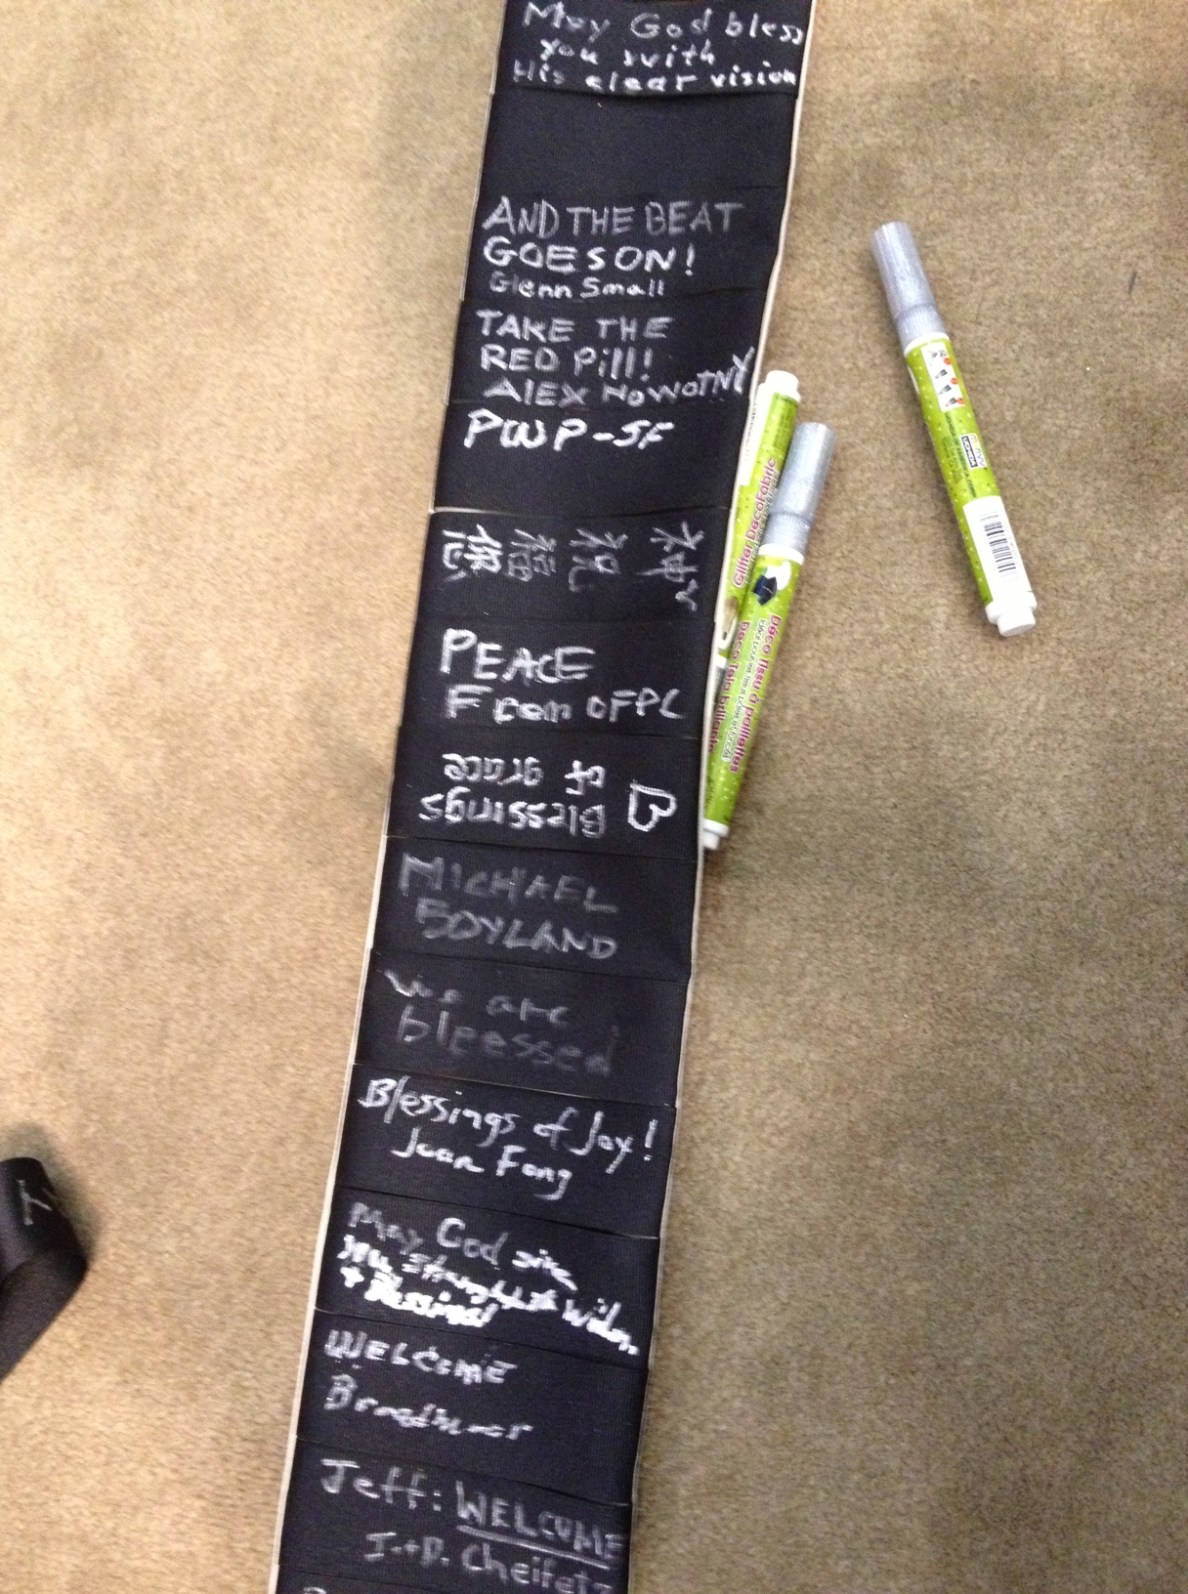 May God bless
you with
His clear vision
AND THE BEAT
GOES ON!
Glenn Small
TAKE THE
RED Pill!
ALEX NOWOTNY
PWP-SF
神祝福
PEACE
From OFPC
Blessings
of grace
MICHAEL
BOYLAND
We are
blessed
Blessings of Joy!
Juan Fong
May God give
you strength
+ Blessings
WELCOME
Jeff: WELCOME
J.+D. Cheifetz
Glitter DecoFabric
Déco tissu à paillettes
Deco Tela brillante